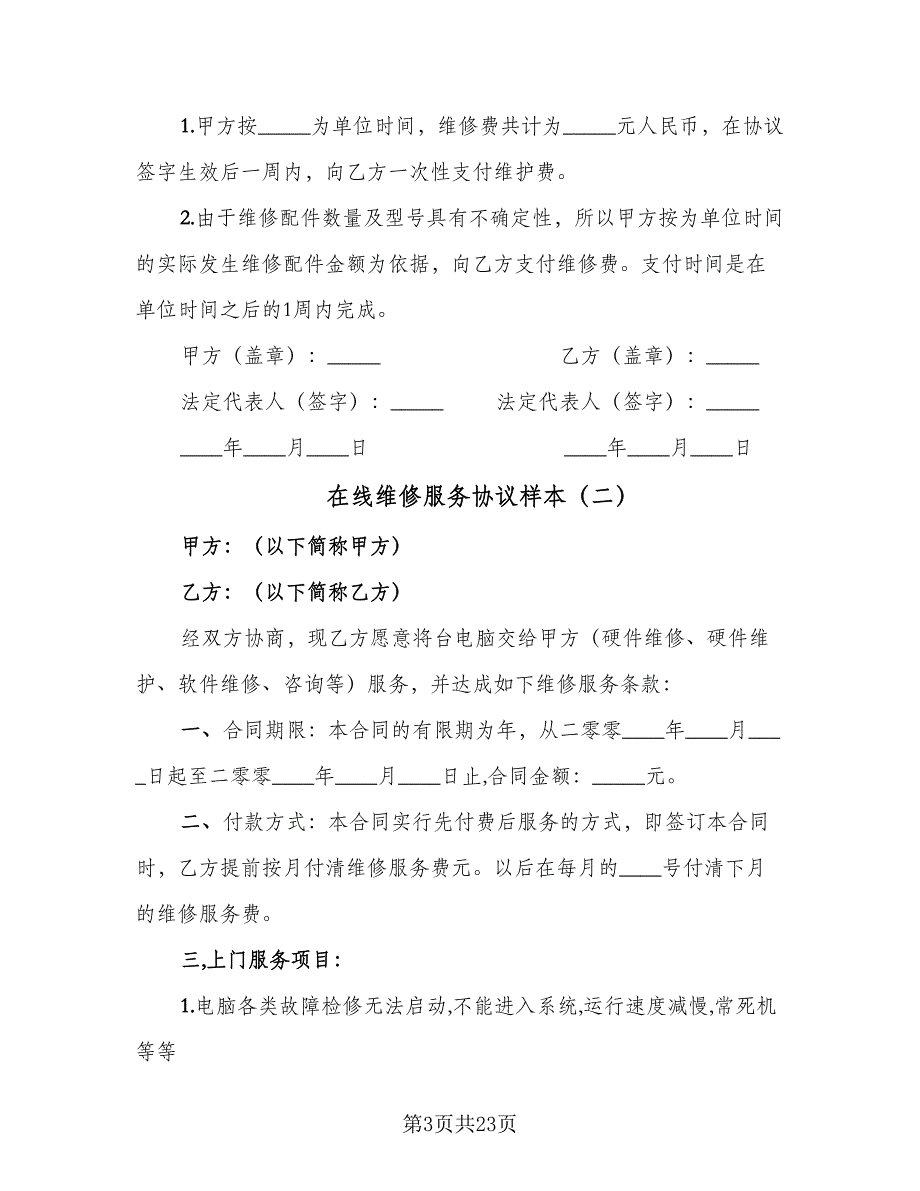 1.甲方按_____为单位时间，维修费共计为_____元人民币，在协议
签字生效后一周内，向乙方一次性支付维护费。
2.由于维修配件数量及型号具有不确定性，所以甲方按为单位时间
的实际发生维修配件金额为依据，向乙方支付维修费。支付时间是在
单位时间之后的1周内完成。
甲方（盖章）：_____ 乙方（盖章）：_____
法定代表人（签字）：_____ 法定代表人（签字）：_____
____年____月____日 ____年____月____日
在线维修服务协议样本（二）
甲方：（以下简称甲方）
乙方：（以下简称乙方）
经双方协商，现乙方愿意将台电脑交给甲方（硬件维修、硬件维
护、软件维修、咨询等）服务，并达成如下维修服务条款：
一、合同期限：本合同的有限期为年，从二零零____年____月___
_日起至二零零____年____月____日止,合同金额：_____元。
二、付款方式：本合同实行先付费后服务的方式，即签订本合同
时，乙方提前按月付清维修服务费元。以后在每月的____号付清下月
的维修服务费。
三,上门服务项目：
1.电脑各类故障检修无法启动,不能进入系统,运行速度减慢,常死机
等等
第3页共23页